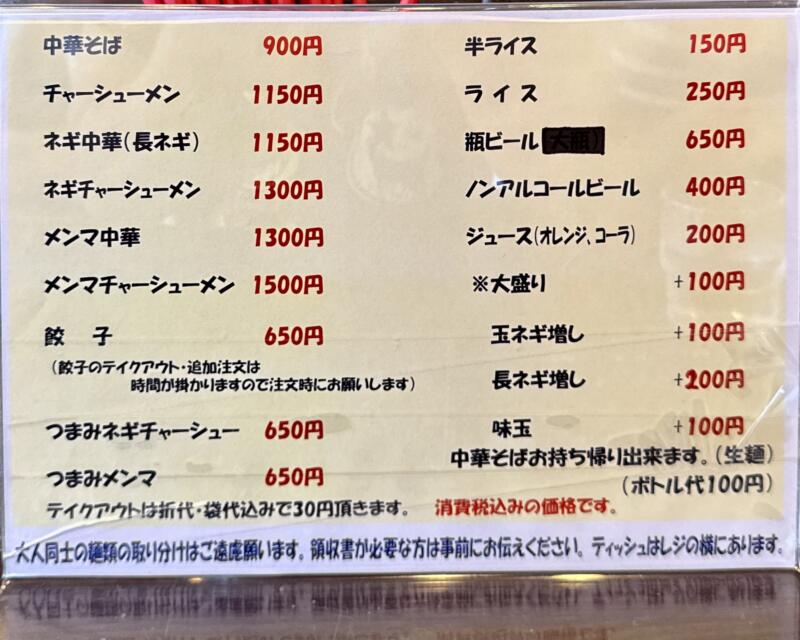 中華そば 900円
チャーシューメン 1150円
ネギ中華(長ネギ) 1150円
ネギチャーシューメン 1300円
メンマ中華 1300円
メンマチャーシューメン 1500円
餃 子 650円
(餃子のテイクアウト・追加注文は
時間が掛かりますので注文時にお願いします)
つまみネギチャーシュー 650円
つまみメンマ 650円
テイクアウトは折代・袋代込みで30円頂きます。
半ライス 150円
ラ イ ス 250円
瓶ビール(大瓶) 650円
ノンアルコールビール 400円
ジュース(オレンジ、コーラ) 200円
※大盛り +100円
玉ネギ増し +100円
長ネギ増し +200円
味玉 +100円
中華そばお持ち帰り出来ます。(生麺)
(ボトル代100円)
消費税込みの価格です。
大人同士の麺類の取り分けはご遠慮願います。領収書が必要な方は事前にお伝えください。ティッシュはレジの横にあります。